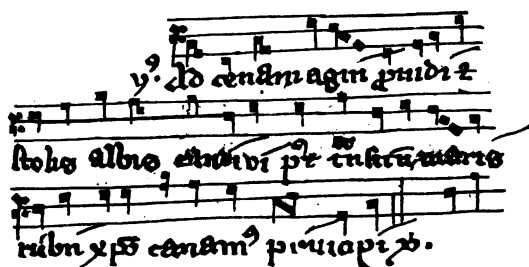 yꝰ. Ad cenam agni ꝓuidi ⁊
stolis albis candidi pꝰt t̅nsitū maris
rubri xp̅o canamꝰ principi